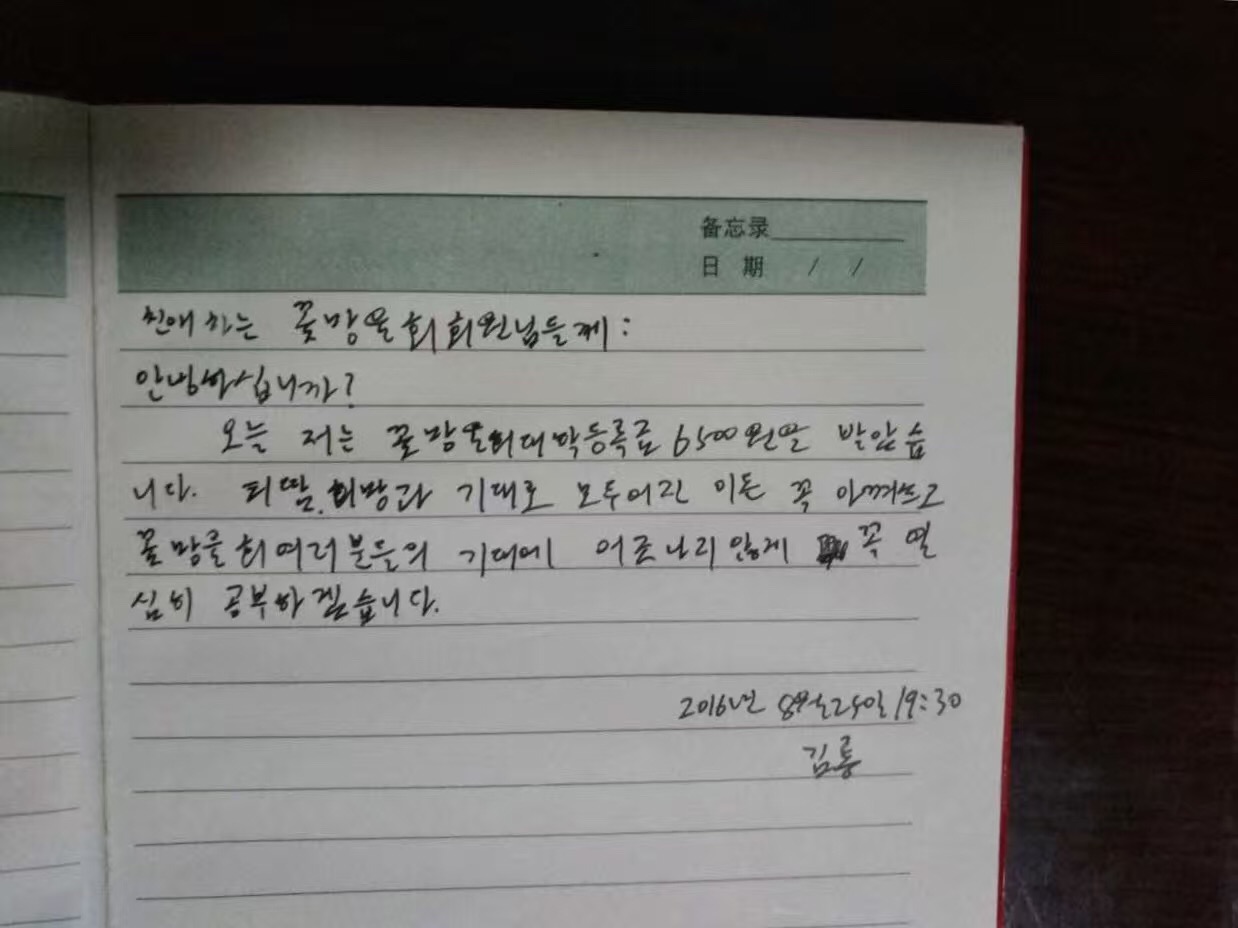 备忘录
日 期 / /
친애하는 꽃망울회 회원님들께:
안녕하십니까?
오늘 저는 꽃망울회대학등록금 6500원을 받았습
니다. 피땀, 희망과 기대로 모두어진 이돈 꼭 아껴쓰고
꽃망울회여러분들의 기대에 어긋나지 않게 꼭 열
심히 공부하겠습니다.
2016년 8월25일 19:30
김룡